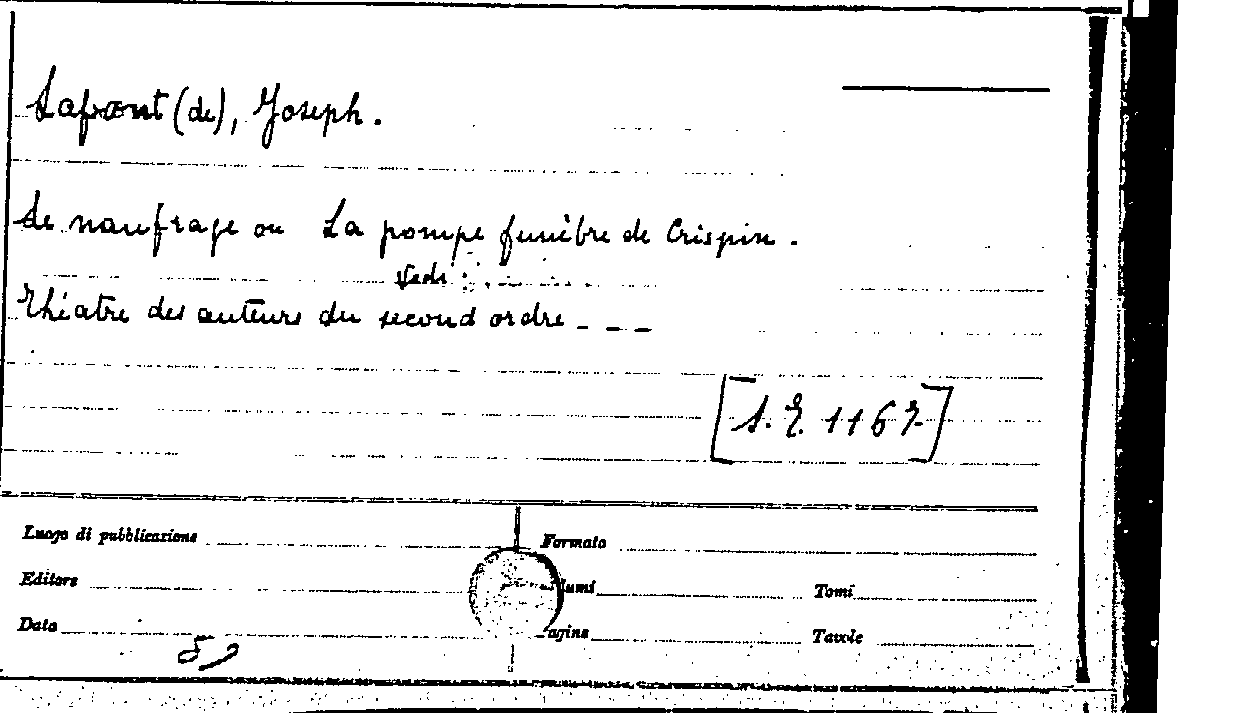 Lafont (de), Joseph.
Le naufrage ou La pompe funèbre de Crispin.
Vedi:
Théatre des auteurs du second ordre - - -
[S. T. 1167]
Luogo di pubblicazione
Formato
Editore
lumi
Tomi
Data
agine
Tavole